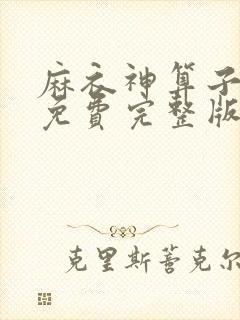 麻衣神算子
免费完整版
克里斯蒂克尔